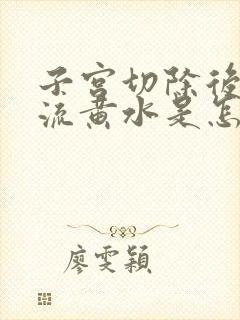 子宫切除後
流黄水是怎
廖雯颖